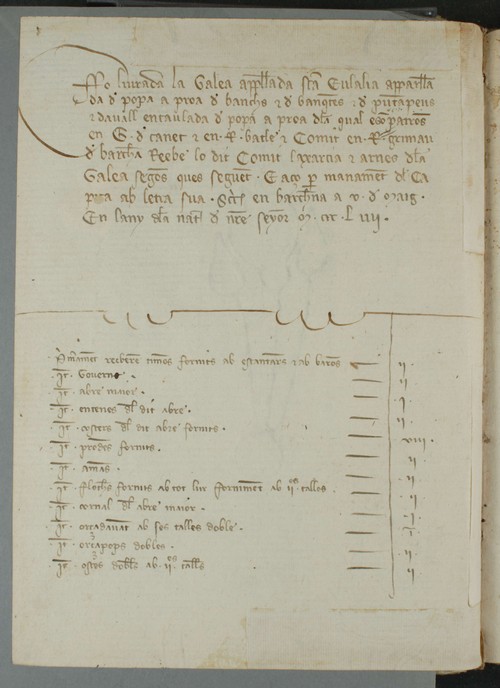 Fo liurada la Galea appellada sta Eulalia apparella
da d popa a proa d banchs z d banqtes z d puntapeus
z dauall entaulada d popa a proa dla qual eran patrons
en G. d canet z en R. batle z Comit en R. grimau
d barchna Reebe lo dit Comit la xarcia z arneo dla
Galea segons ques seguex. E aço p manament dl Ca
pita ab letra sua. Scrit en barchna a v. d Maig.
En lany dla nat d nre senyor M. CCC. L iiii.
Primament reebere timos fornits ab ab barons ij.
It. Governs. ij.
It. abre maior. j.
It. entenes dl dit abre. ij.
It. costers dl dit abre fornits. viii.
It. prodes fornits. ij
It. amans. ij.
It. fornits ab tot lur forniment ab ii talles ij.
It. cornal dl abre maior. j.
It. orçadauant ab ses talles doble. j.
It. orçapops dobles. ij.
It. dobles ab ii talles ij